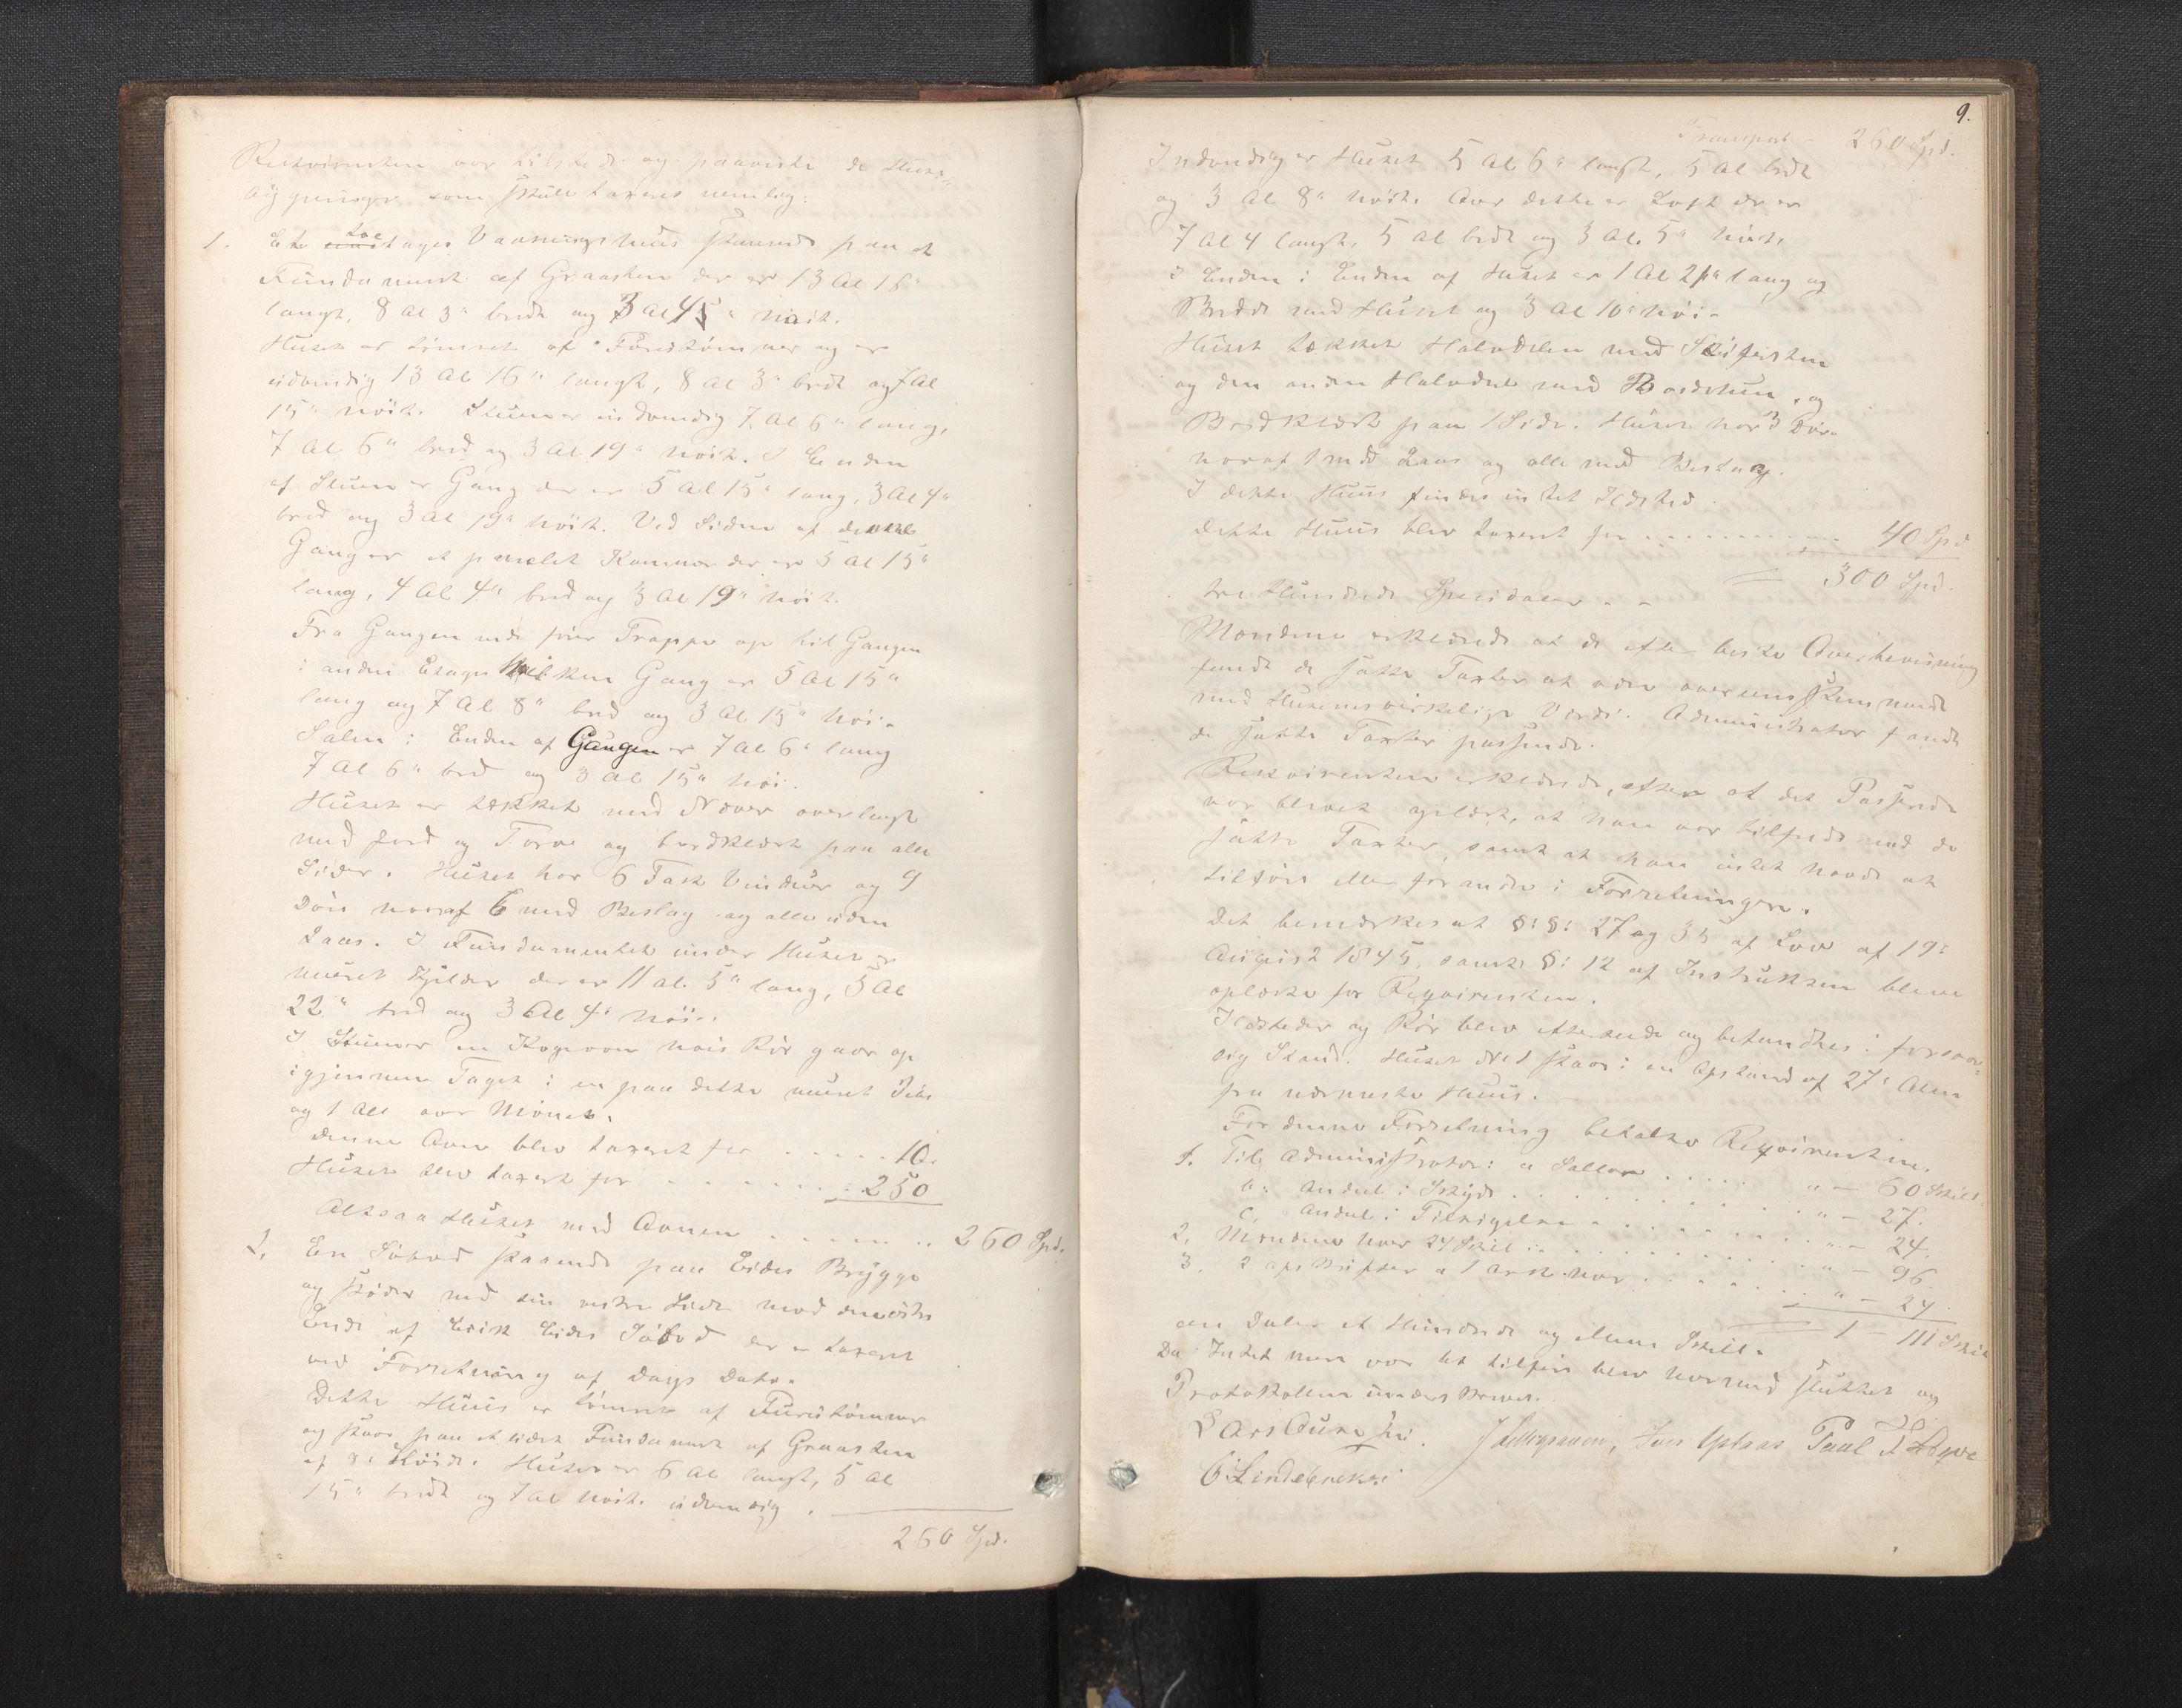 Rekvirenten var tilstede og paaviste de Huus-
bygninger som skulle taxeres nemlig:
1. Et toetages Vaaningshuus staaende paa et
Fundament af Graasten der er 13 Al 16"
langt, 8 Al 3" bredt og 3 Al 4" høit.
Huset er tømret af Furutømmer og er
udvendig 13 Al 16" langt, 8 Al 3" bredt og 7 Al
15" høit. Stuen er indvendig 7 Al 6" lang,
7 Al 6" bred og 3 Al 19" høit. I Enden
af Stuen er Gang der er 5 Al 15" lang, 3 Al 4"
bred og 3 Al 19" høit. Ved Siden af denne
Gang er et panelet Kammer der er 5 Al 15"
lang, 4 Al 4" bred og 3 Al 19" høit.
Fra Gangen nede fører Trappe op til Gangen
i anden Etage hvilken Gang er 5 Al 15"
lang og 7 Al 8" bred og 3 Al 15" høi.
Salen i Enden af Gangen er 7 Al 6" lang
7 Al 6" bred og 3 Al 15" høi.
Huset er tækket med Næver overlagt
med Jord og Torv og bordklædt paa alle
Sider. Huset har 6 Fask Vinduer og 9
Døre hvoraf 6 med Beslag og alle uden
Laas. I Fundamentet under Huset er
muret Kjelder der er 11 Al. 5" lang, 5 Al
22" bred og 3 Al 4" høi.
I Stuen er en Kogeovn hvis Rør gaar op
igjennem Taget i en paa dette muret Pibe
og 1 Al over Mønet.
Denne Ovn blev taxeret for . . . . . 10.
Huset blev taxert for . . . . . . . . 250
Altsaa Huset med Ovnen . . . . . . . 260 Spd.
2. En Søbod staaende paa Eides Brygge
og støder med sin vestre Side mod den østre
Ende af Erik Eides Søbod der er taxeret
ved Forretning af Dags Dato.
Dette Huus er tømret af Furutømmer
og staar paa et lidet Fundament af Graasten
af Høide. Huset er 6 Al langt, 5 Al
15" bredt og 7 Al høit udvendig.
260 Spd.
9.
Transport - 260 Spd.
Indvendig er Huset 5 Al 6" langt, 5 Al bredt
og 3 Al 8" høit. Over dette er Loft der er
7 Al 4 langt, 5 Al bredt og 3 Al. 5" høit.
I Enden af Huset er 1 Al 21" lang og
Bredde med Huset og 3 Al 10" høi.
Huset tækket Halvdelen med Skifersten
og den anden Halvdel med Bordtun, og
Bordklædt paa 1 Side. Huset har 3 Døre
hvoraf 1 med Laas og alle med Beslag.
I dette Huus findes intet Ildsted.
Dette Huus blev taxeret for . . . . . . . . . 40 Spd
300 Spd.
tre Hundrede Speciedaler - -
Mændene erklærede at de efter beste Overbevisning
fandt de satte Taxter at være overensstemmende
med Husenes virkelige Værdi. Administrator fandt
de satte Taxter passende.
Rekvirenten erklærede, efter at det Passerede
var blevet oplæst, at han var tilfreds med de
satte Taxter, samt at han intet havde at
tilføie eller forandre i Forretningen.
Det bemærkes at §:§: 27 og 35 af Lov af 19:
August 1845, samt §: 12 af Instruksen bleve
oplæste for Reqvirenten.
Ildsteder og Rør blev efterseede og befandtes i forsvar-
lig Stand. Huset No 1 staar i en Afstand af 27" Alen
fra nærmeste Huus.
For denne Forretning betalte Reqvirenten.
1. Til Administrator: a Sallær . . . . . " - 60 Skill.
b: Andel i Skyds . . . . . . . . . " - 27.
c. Andel i Tilsigelse . . . . . . . . " - 24.
2. Mændene hver 24 Skill: . . . . . . . . . " - 96.
3. 2 Afskrifter a 1 ark hver . . . . . . . " - 24.
1 - 111 Skill
een Daler et Hundrede og elleve Skill.
Da Intet mere var at tilføie blev hermed sluttet og
Protokollen underskreven.
Lars Paul